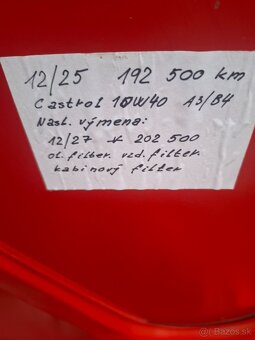 12/25 192 500 km
Castrol 10W40 A3/B4
Nasl. výmena:
12/27 + 202 500
ol. filter. vzd. filter.
kabínový filter
Bazos.sk